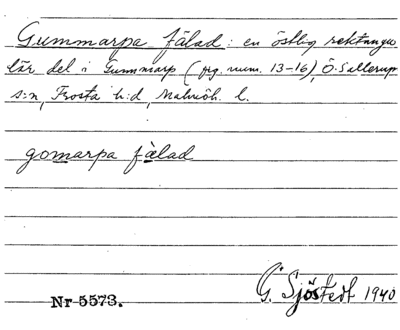 Gummarpa fälad: en östlig rektangu
lär del i Gummarp (fig. num. 13-16), Ö. Sallerup
s:n, Frosta h:d, Malmöh. l.
gomarpa fälad
G. Sjöstedt 1940
Nr 5573.